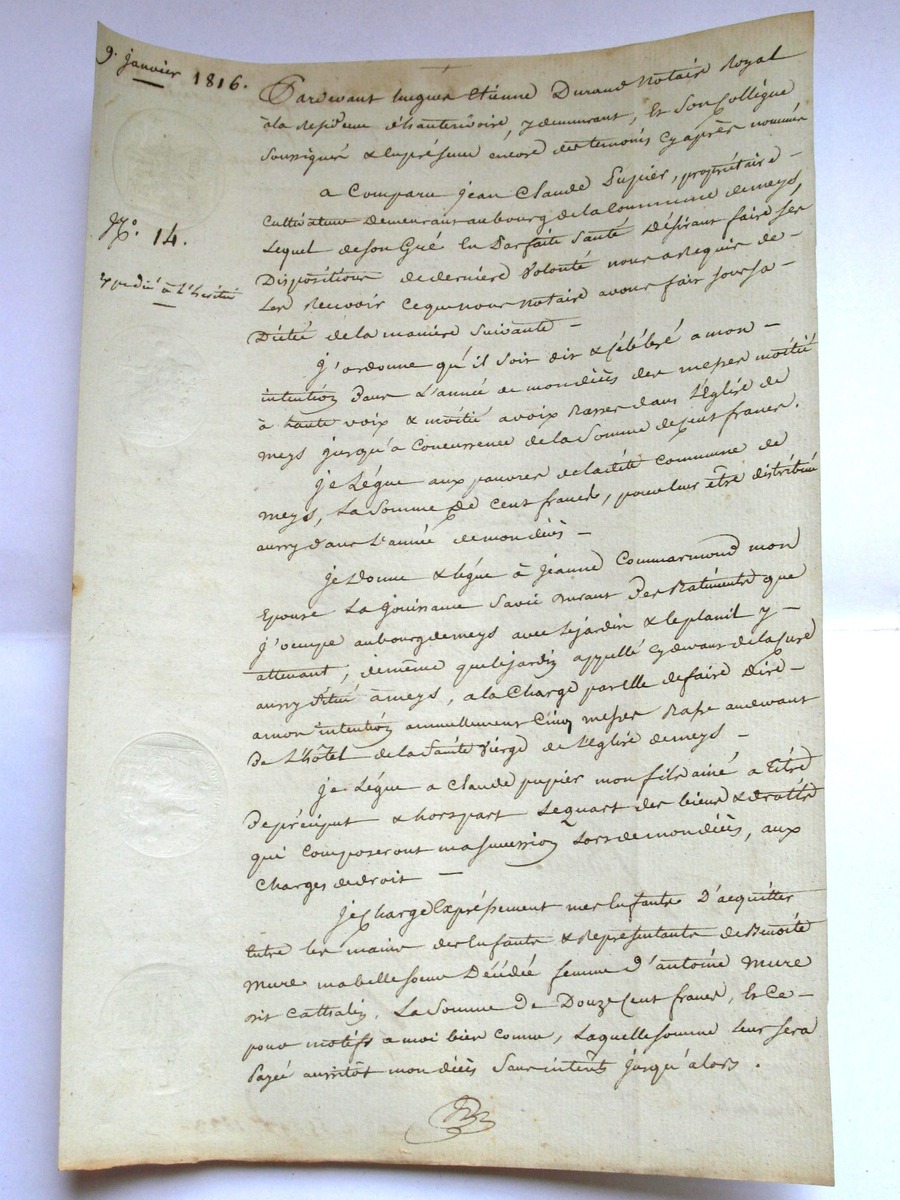 9. janvier 1816.
Pardevant hugues Etienne Durand Notaire Royal
à la Residence d'hauterivoire, y demeurant, et son Collègue
soussignés & en présence encore des temoins cy après nommés
a Comparu jean Claude Pupier, propriétaire
N.º 14.
Cultivateur Demeurant au bourg de la Commune de meys,
Lequel de son Gré en Parfaite Santé Désirant faire ses
Expedié à l'heritié
Dispositions de derniere Volonté nous a Requis de
Les Recevoir ce que nous Notaire avons fait sous sa
Dictée de la maniere suivante
j'ordonne qu'il soit dit & célébré a mon
intention Dans L'année de mon décès des messes moitié
à haute voix & moitié a voix Basse dans L'Eglise de
meys jusqu'à Concurrence de la Somme de cent francs.
je Lègue aux pauvres de la dite Commune de
meys, La Somme de Cent francs, pour leur être distribué
aussy dans L'année de mon décès
je donne & lègue à jeanne Commarmond mon
Epouse La jouissance sa vie Durant Des Batiments que
j'occupe au bourg de meys avec le jardin & le planil y
attenant, de même que le jardin appellé cy devant de la Cure
aussy Situé à meys, a la Charge par Elle de faire Dire
a mon intention annuellement Cinq messes Basse au devant
De L'hôtel de la Sainte Vierge de l'Eglise de meys
je Lègue a Claude pupier mon fils ainé a titre
De préciput & hors part Le quart des biens & droits
qui Composeront ma succession Lors de mon décès, aux
Charges de droit
je Charge Expréssement mes Enfants D'acquitter
Entre les mains des Enfants & Représentants de Benoite
Mure ma belle soeur Décédée femme d'antoine Mure
dit Cathalin, La Somme De Douze Cent francs, Et Ca
pour motifs a moi bien connu, Laquelle somme leur sera
Payée aussitôt mon décès sans intérêts jusqu'alors.